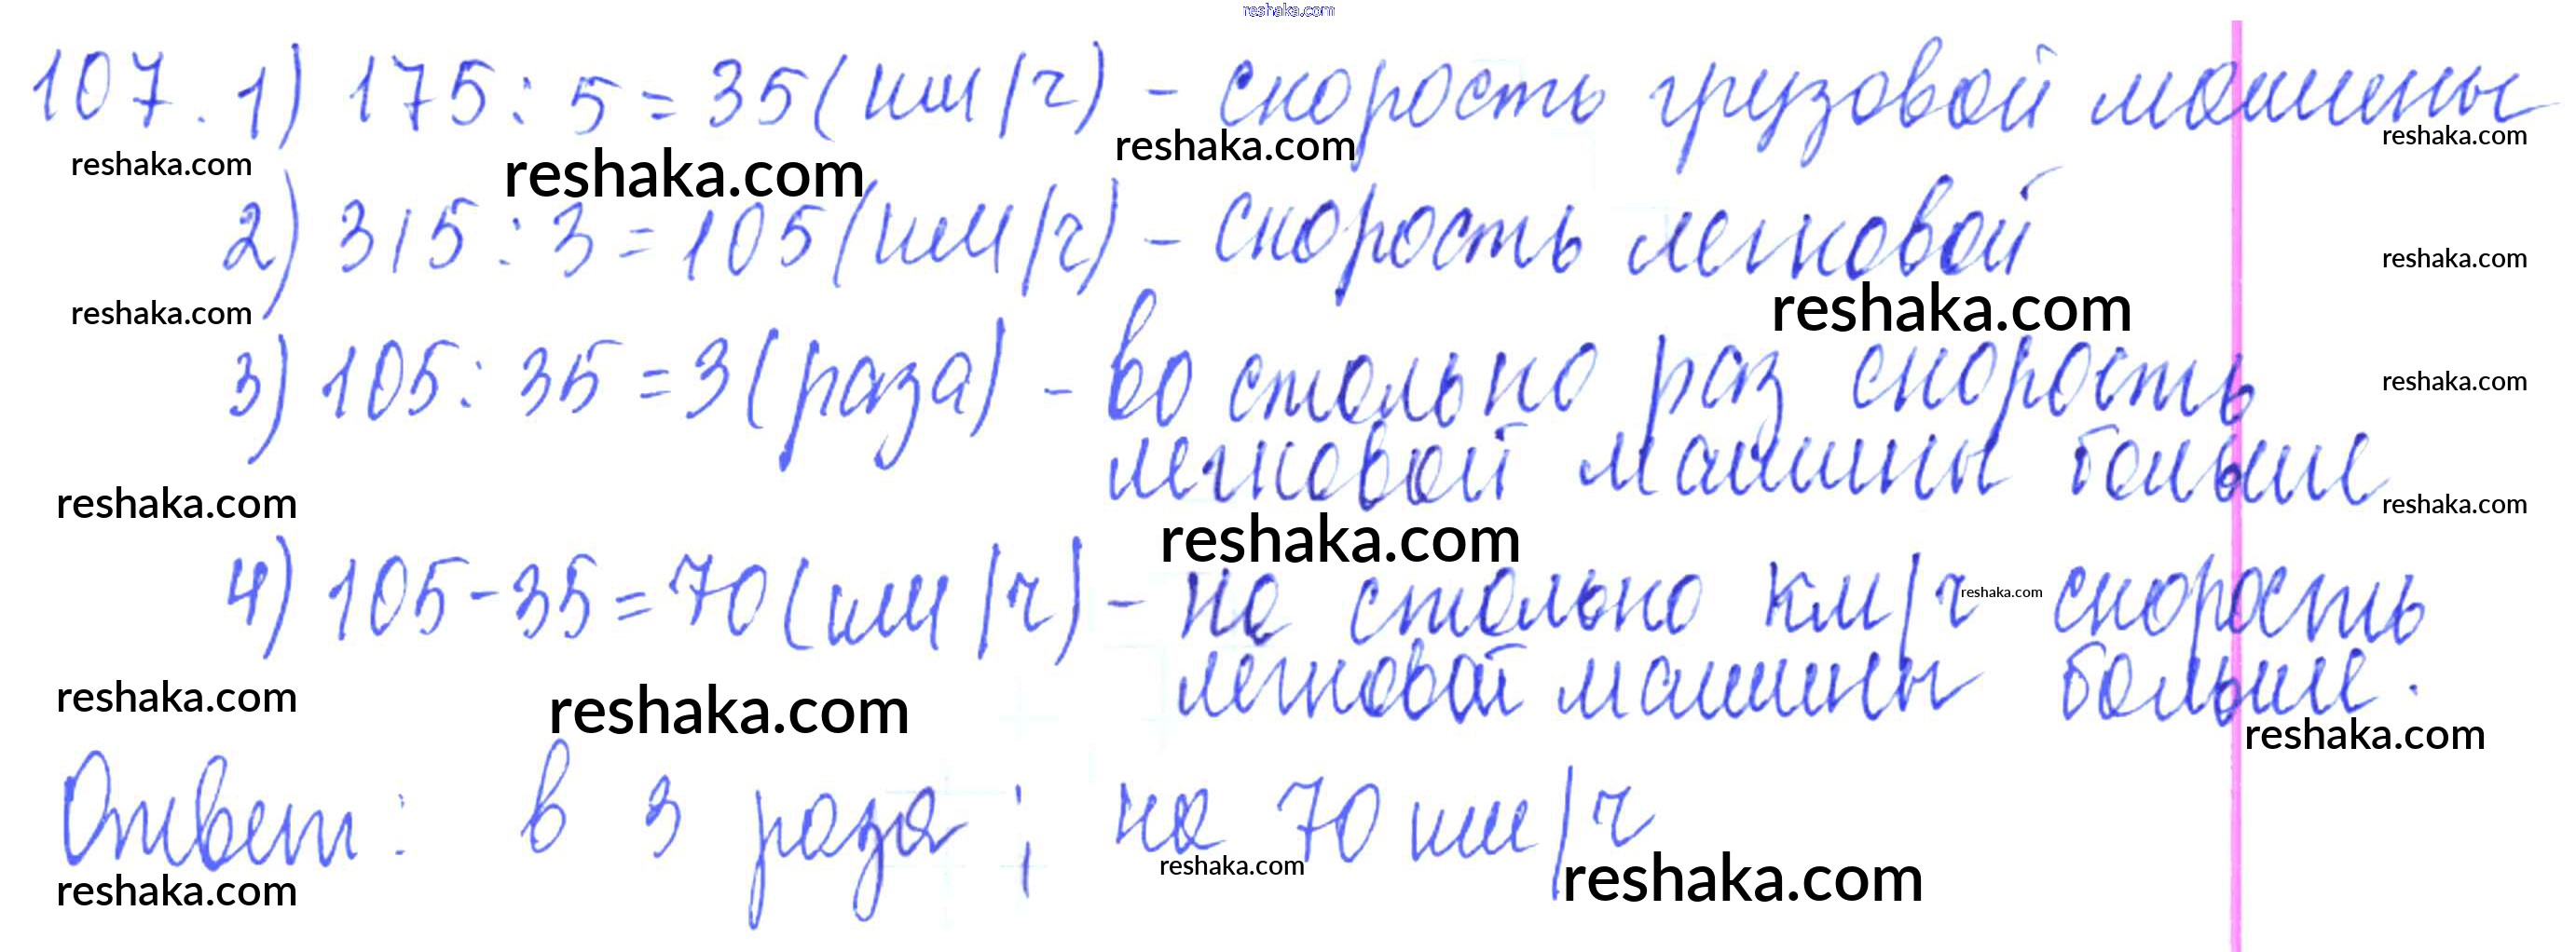 reshaka.com
107. 1) 175 : 5 = 35 (км/ч) - скорость грузовой машины
reshaka.com reshaka.com reshaka.com reshaka.com
2) 315 : 3 = 105 (км/ч) - скорость легковой
reshaka.com
reshaka.com reshaka.com
3) 105 : 35 = 3 (раза) - во столько раз скорость
reshaka.com
легковой машины больше
reshaka.com reshaka.com
reshaka.com
4) 105 - 35 = 70 (км/ч) - на столько км/ч скорость
reshaka.com
легковой машины больше.
reshaka.com reshaka.com reshaka.com
Ответ: в 3 раза; на 70 км/ч
reshaka.com reshaka.com reshaka.com